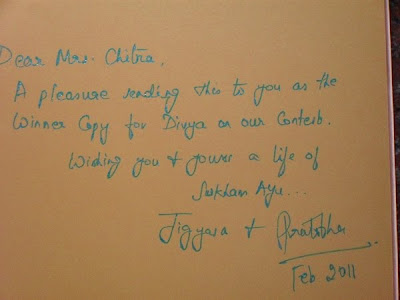 Dear Mrs. Chitra,
A pleasure sending this to you as the
Winner Copy for Divya on our Contest.
Wishing you & yours a life of
Sukham Ayu...
Jigyasa & Pratibha
Feb 2011